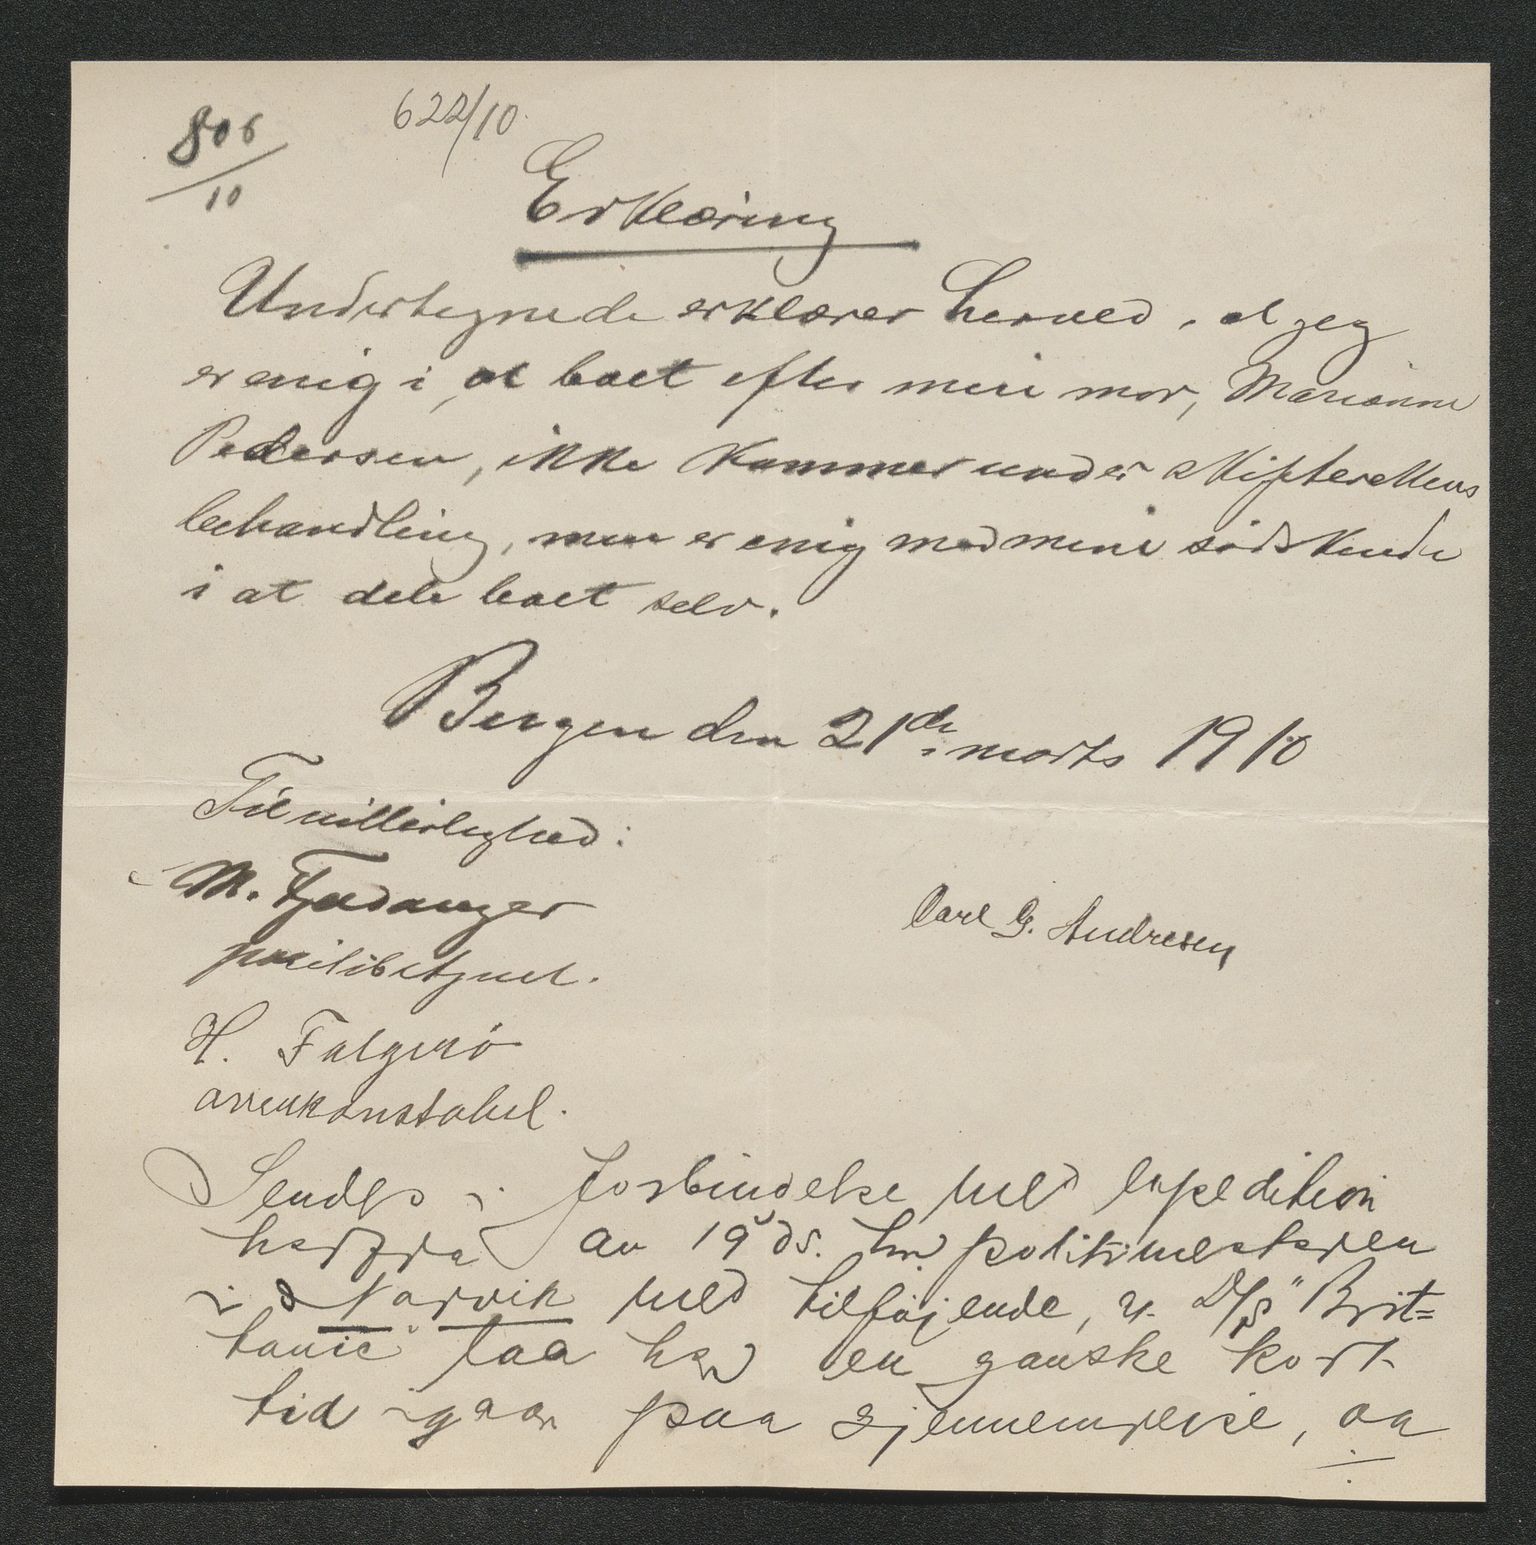 806/10
622/10.
Erklæring
Undertegnede erklærer herved, at jeg
er enig i, at boet efter min mor, Marianne
Pedersen, ikke kommer under skifterettens
behandling, men er enig med mine sødskende
i at dele boet selv.
Bergen den 21de marts 1910
Til vitterlighed:
M. Fjeldanger
politibetjent.
Carl G. Andresen
H. Falgerø
overkonstabel.
Sendes i forbindelse med expedition
herfra av 19 ds. hr. politimesteren
i Narvik med tilføjende, D/S "Brit=
tanic" laa her en ganske kort
tid igaar paa gjennemreise, og